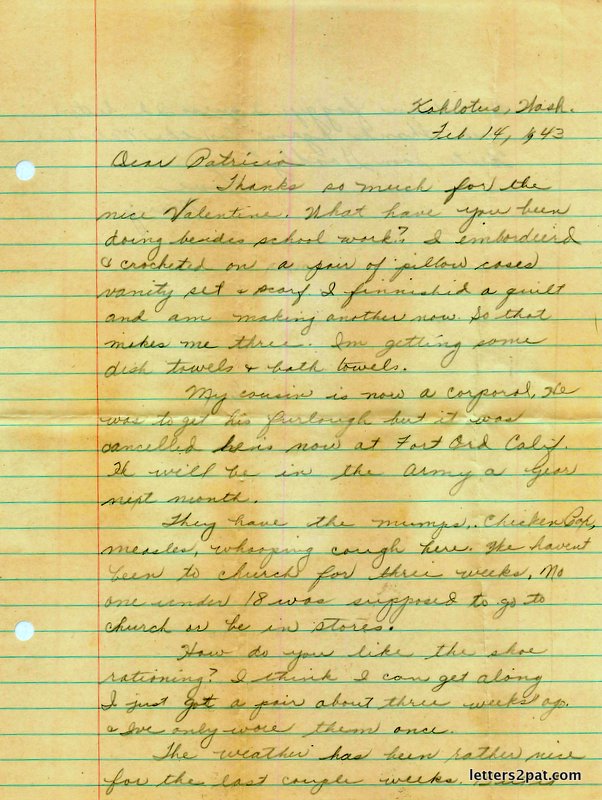 Kahlotus, Wash.
Feb 14, 43
Dear Patricia
Thanks so much for the
nice Valentine. What have you been
doing besides school work? I embordierd
& crocheted on a pair of pillow cases
vanity set & scarf I finnishid a quilt
and am making another now. So that
makes me three. Im getting some
dish towels & bath towels.
My cousin is now a corporal, He
was to get his furlough but it was
cancelled he is now at Fort Ord Calif.
He will be in the army a year
next month.
They have the mumps, Chicken Pox,
measles, whooping cough here. We havent
been to church for three weeks, No
one under 18 was supposed to go to
church or be in stores.
How do you like the shoe
rationing? I think I can get along
I just got a pair about three weeks ago.
& Ive only wore them once.
The weather has been rather nice
for the last couple weeks.
letters2pat.com